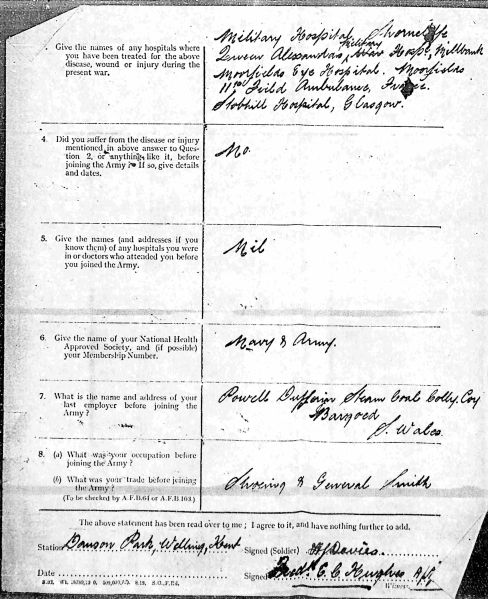 Give the names of any hospitals where
you have been treated for the above
disease, wound or injury during the
present war.
Military Hospital, Shorncliffe
Queen Alexandras Military Hosp, Millbank
Moorfields Eye Hospital. Moorfields
11th Feild Ambulance, France.
Stobhill Hospital, Glasgow.
4. Did you suffer from the disease or injury
mentioned in above answer to Ques-
tion 2, or anything like it, before
joining the Army? If so, give details
and dates.
No.
5. Give the names (and addresses if you
know them) of any hospitals you were
in or doctors who attended you before
you joined the Army.
Nil
6. Give the name of your National Health
Approved Society, and (if possible)
your Membership Number.
Navy & Army.
7. What is the name and address of your
last employer before joining the
Army?
Powell Dufferin Steam Coal Colly. Coy
Bargoed
S. Wales
8. (a) What was your occupation before
joining the Army?
(b) What was your trade before joining
the Army?
(To be checked by A.F.B. 64 or A.F.B. 103.)
Shoeing & General Smith
The above statement has been read over to me; I agree to it, and have nothing further to add.
Station Danson Park, Welling, Kent Signed (Soldier) Davies.
Date Signed E. C. Hughes